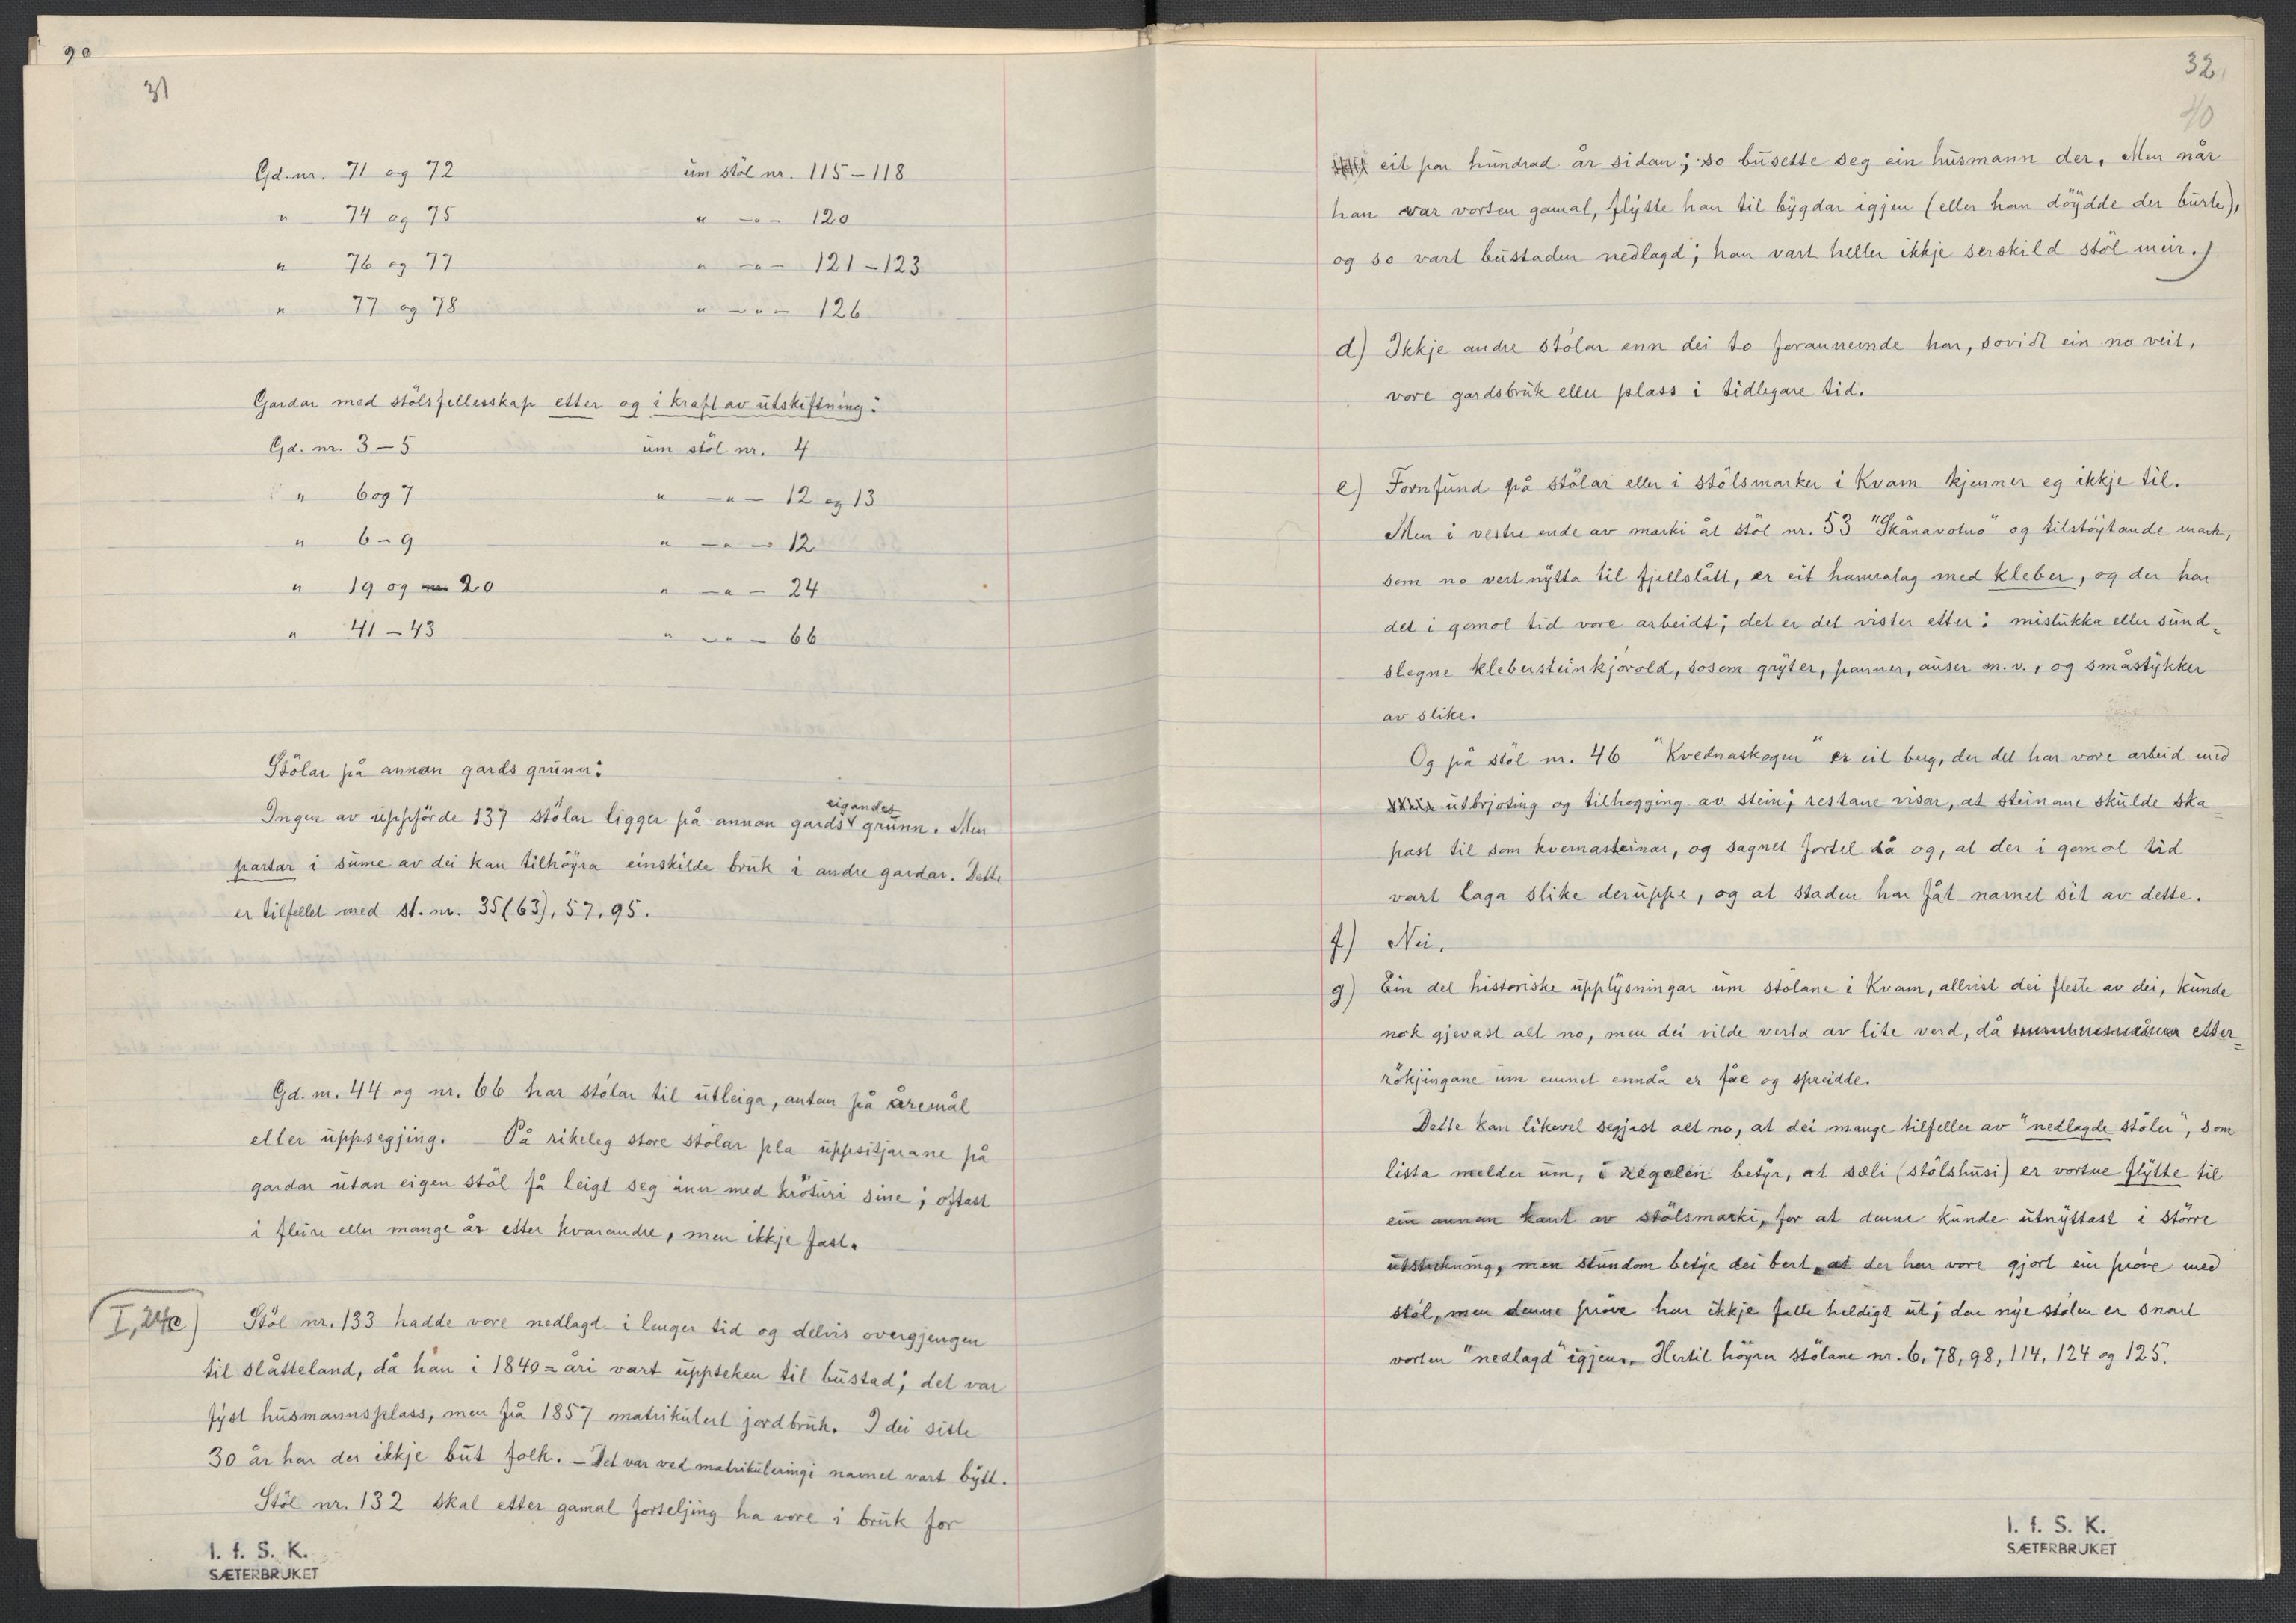 90
31
Gd. nr. 71 og 72 um stöl nr. 115 – 118
" 74 og 75 " –"– 120
" 76 og 77 " –"– 121 – 123
" 77 og 78 " –"– 126
Gardar med stölsfellesskap etter og i kraft av utskiftning:
Gd. nr. 3 – 5 um stöl nr. 4
" 6 og 7 " –"– 12 og 13
" 6 – 9 " –"– 12
" 19 og 20 " –"– 24
" 41 – 43 " –"– 66
Stölar på annan gards grunn:
eigandes
Ingen av uppförde 137 stölar ligger på annan gards grunn. Men
partar i sume av dei kan tilhöyra einskilde bruk i andre gardar. Dette
er tilfellet med st. nr. 35 (63), 57, 95.
Gd. nr. 44 og nr. 66 har stölar til utleiga, antan på åremål
eller uppsegjing. – På rikeleg store stölar pla uppsitjarane på
gardar utan eigen stöl få leigt seg inn med kröturi sine; oftast
i fleire eller mange år etter kvarandre, men ikkje fast.
I, 24c) Stöl nr. 133 hadde vore nedlagd i lenger tid og delvis overgjengen
til slåtteland, då han i 1840=åri vart uppteken til bustad; det var
fyst husmannsplass, men frå 1857 matrikulert jordbruk. I dei siste
30 år har der ikkje but folk. – Det var ved matrikuleringi namnet vart bytt.
Stöl nr. 132 skal etter gamal forteljing ha vore i bruk for
I. f. S. K.
SÆTERBRUKET
32
40
eit par hundrad år sidan; so busette seg ein husmann der. Men når
han var vorten gamal, flytte han til bygdar igjen (eller han döydde der burte),
og so vart bustaden nedlagd; han vart heller ikkje serskild stöl meir.)
d) Ikkje andre stölar enn dei to forannemnde har, sovidt ein no veit,
vore gardsbruk eller plass i tidlegare tid.
e) Fornfund på stölar eller i stölsmarker i Kvam kjenner eg ikkje til.
Men i vestre ende av marki åt stöl nr. 53 "Skånavotno" og tilstöytande mark,
som no vert nytta til fjellslått, er eit hamralag med kleber, og der har
det i gomol tid vore arbeidt; det er det vister etter: mislukka eller sund=
slegne klebersteinkjörold, sosom gryter, panner, auser m. v., og småstykker
av slike.
Og på stöl nr. 46 "Kvednaskogen" er eit berg, der det har vore arbeid med
utbrjoting og tilhogging av stein; restane visar, at steinane skulde ska=
past til som kvernasteinar, og sagnet fortel då og, at der i gomol tid
vart laga slike deruppe, og at staden har fåt namnet sit av dette.
f) Nei.
g) Ein del historiske upplysningar um stölane i Kvam, allvist dei fleste av dei, kunde
nok gjevast alt no, men dei vilde verta av lite verd, då etter=
rökjingane um emnet enndå er fåe og spreidde.
Dette kan likevel segjast alt no, at dei mange tilfeller av "nedlagde stöler", som
lista melder um, i regelen betyr, at sæli (stölshusi) er vortne flytte til
ein annan kant av stölsmarki, for at denne kunde utnyttast i större
utstrekning, men stundom betyr dei bert, at der har vore gjort ein pröve med
stöl, men denne pröve har ikkje falle heldigt ut; den nye stölen er snart
vorten "nedlagd" igjen. Hertil höyrer stölane nr. 6, 78, 98, 114, 124 og 125.
I. f. S. K.
SÆTERBRUKET